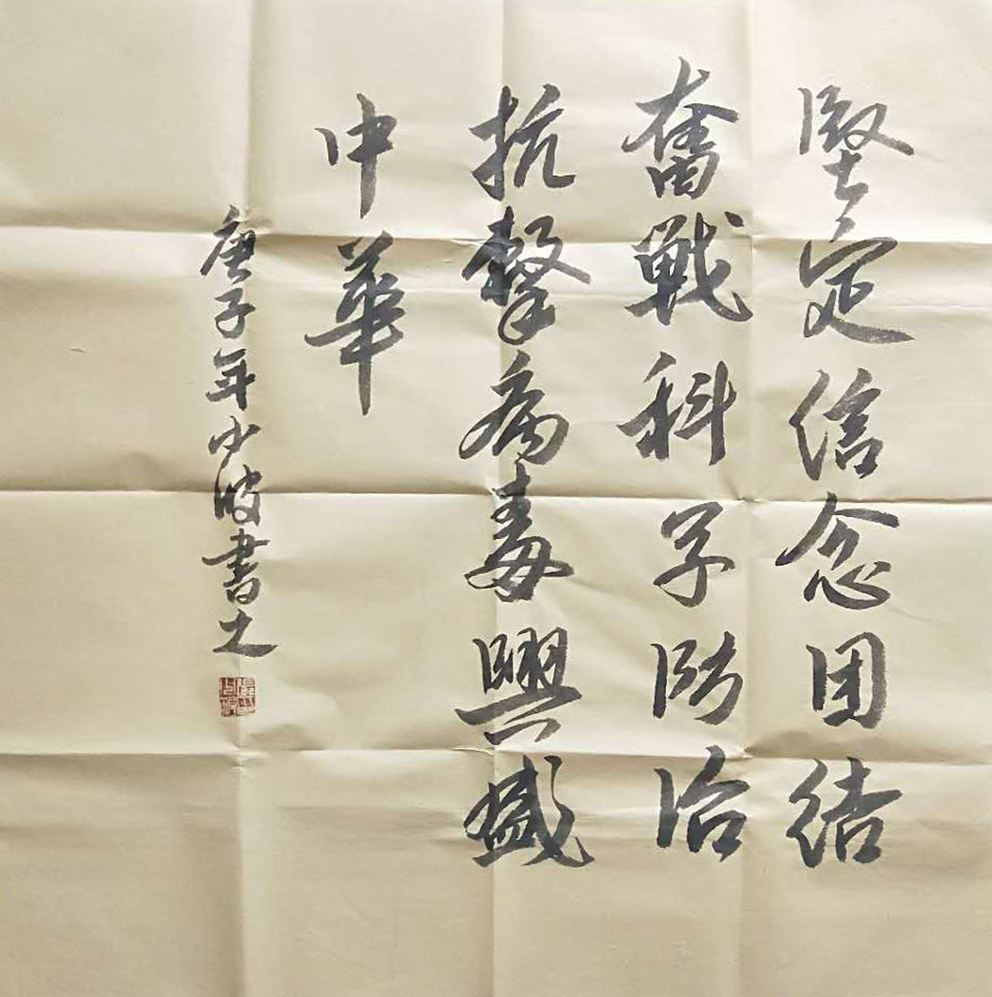 堅定信念团结
奮戰科学防治
抗擊病毒興盛
中華
庚子年少波書之